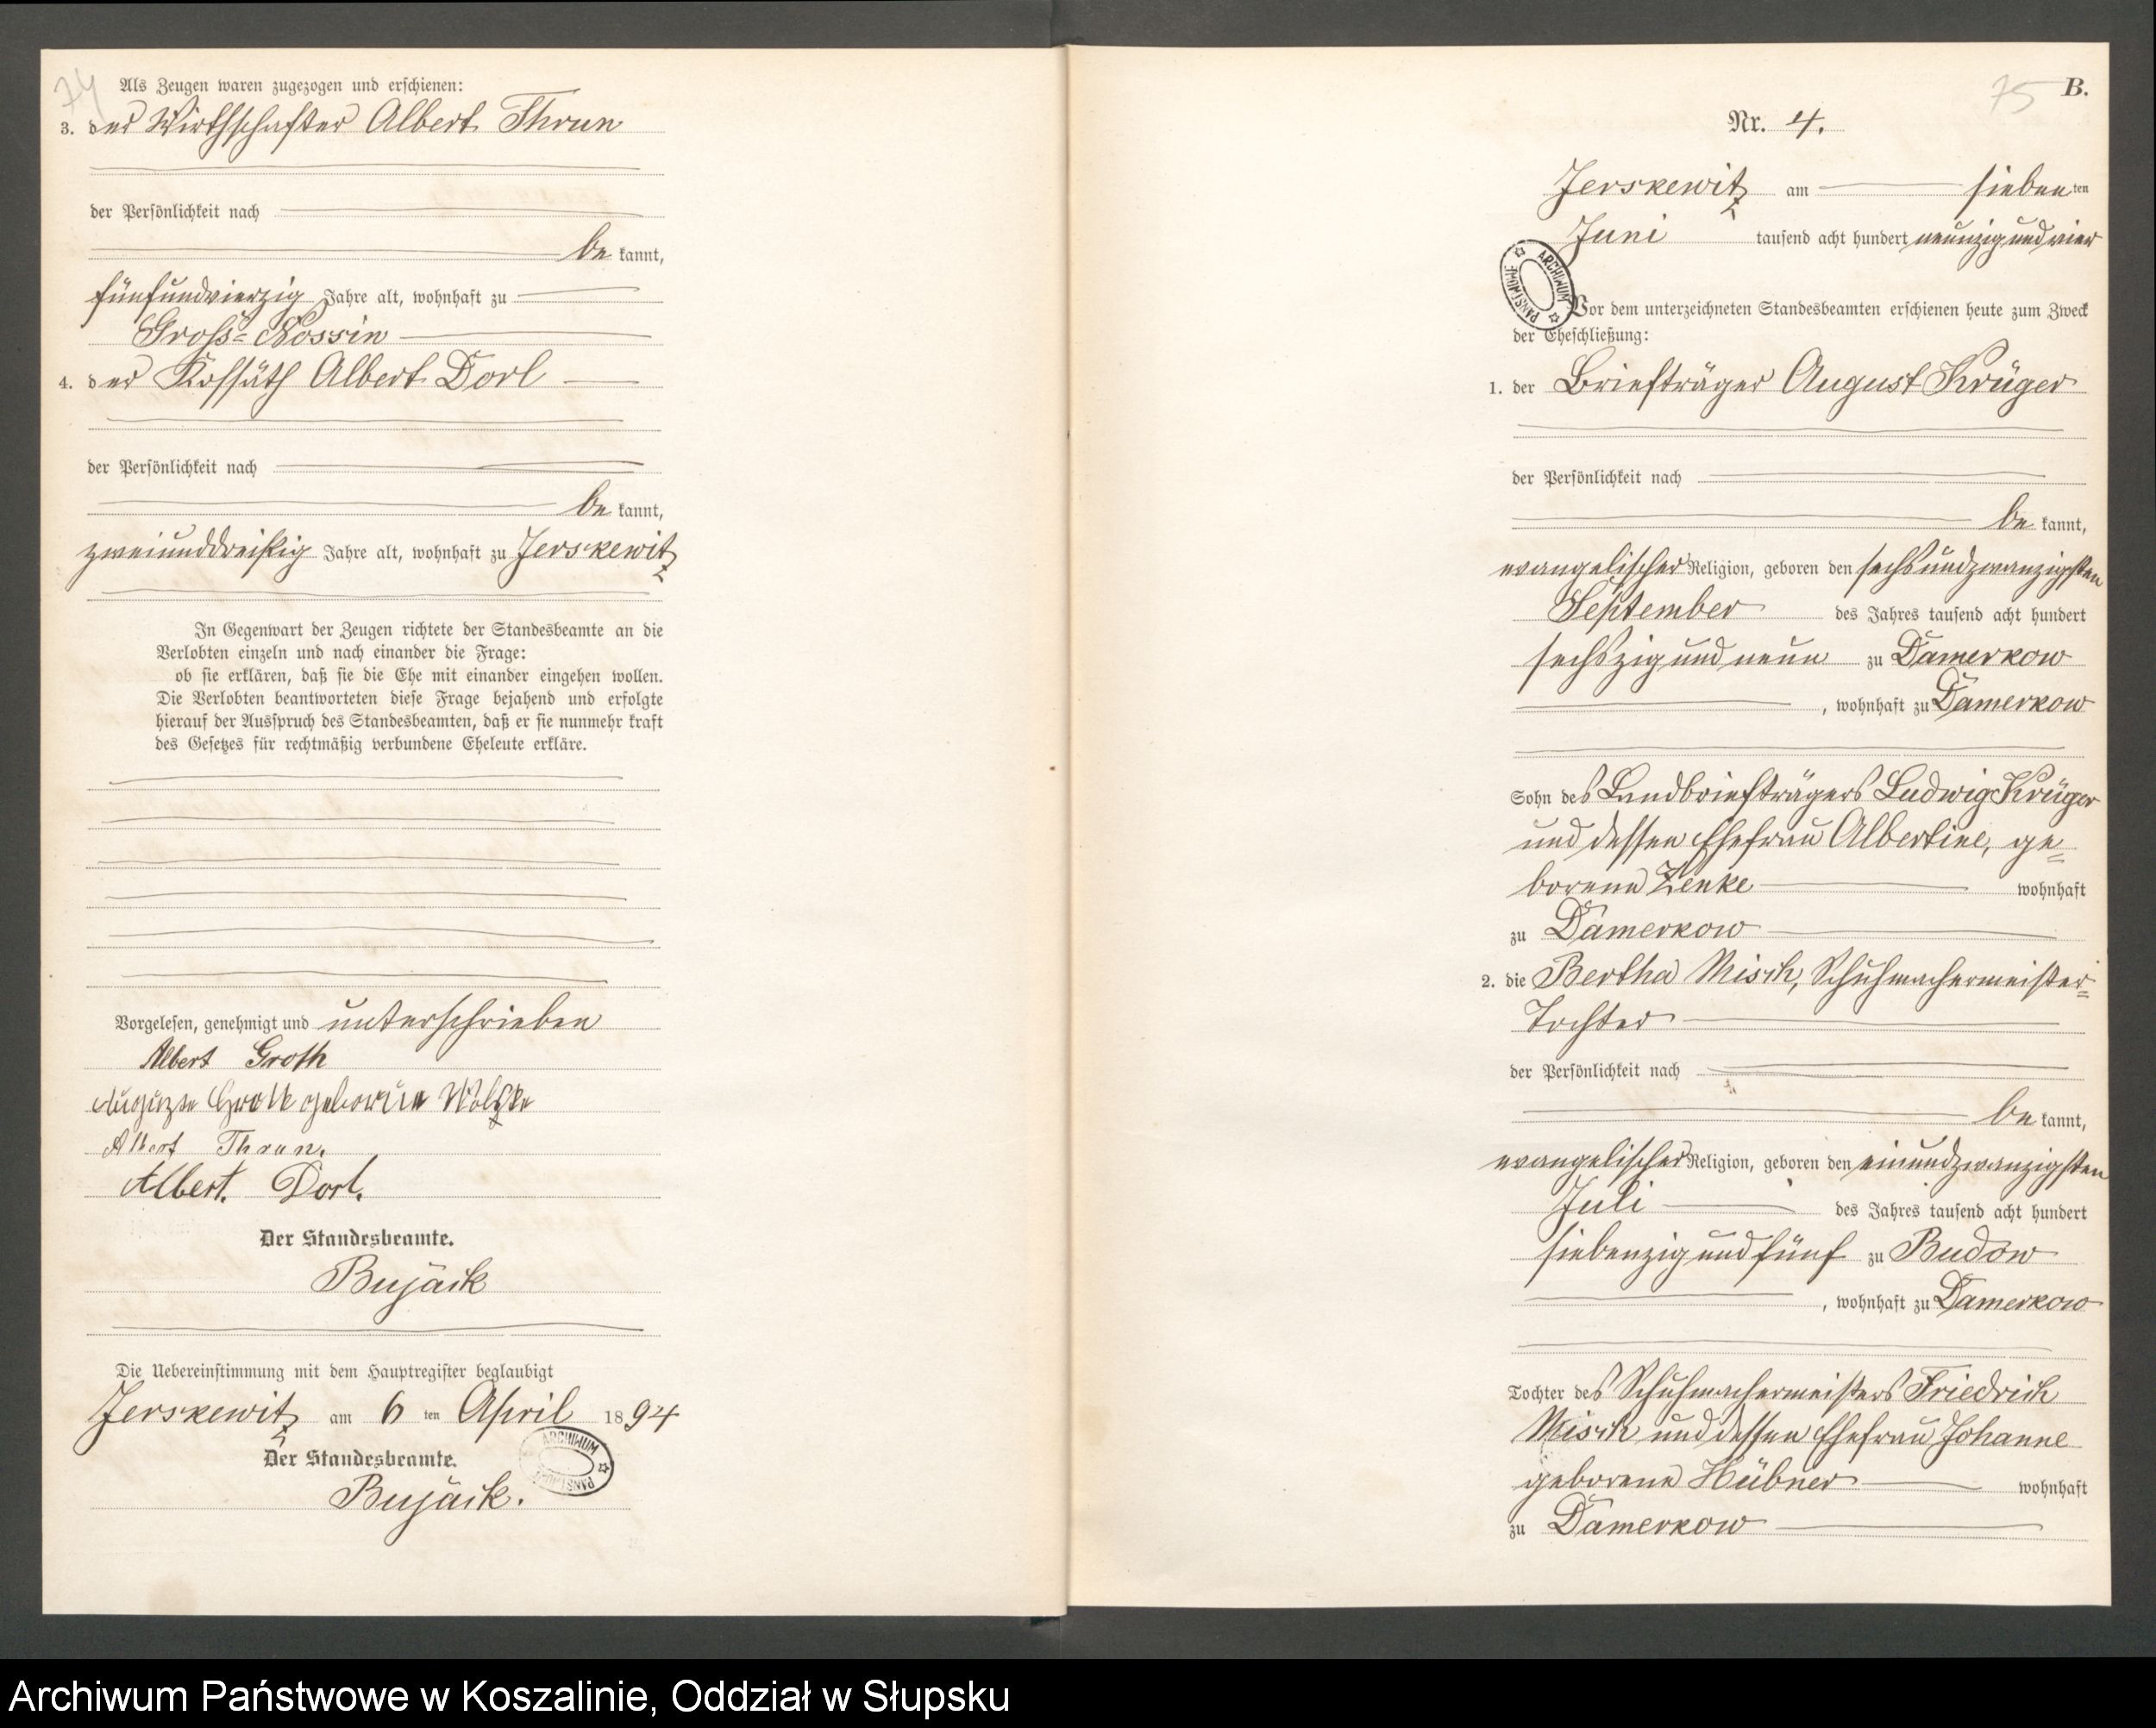 74
Als Zeugen waren zugezogen und erschienen:
3. der Wirthschafter Albert Thrun
der Persönlichkeit nach
be kannt,
fünfundvierzig Jahre alt, wohnhaft zu
Groß-Nossin
4. der Kossäth Albert Dorl
der Persönlichkeit nach
be kannt,
zweiunddreißig Jahre alt, wohnhaft zu Jerskewitz
In Gegenwart der Zeugen richtete der Standesbeamte an die
Verlobten einzeln und nach einander die Frage:
ob sie erklären, daß sie die Ehe mit einander eingehen wollen.
Die Verlobten beantworteten diese Frage bejahend und erfolgte
hierauf der Ausspruch des Standesbeamten, daß er sie nunmehr kraft
des Gesetzes für rechtmäßig verbundene Eheleute erkläre.
Vorgelesen, genehmigt und unterschrieben
Albert Groth
Auguste Groth geborene
Albert Thrun.
Albert. Dorl.
Der Standesbeamte.
Bujack
Die Uebereinstimmung mit dem Hauptregister beglaubigt
Jerskewitz am 6 ten April 1894
ARCHIWUM PAŃSTWOWE
Der Standesbeamte.
Bujack.
75 B.
Nr. 4.
Jerskewitz am sieben ten
Juni tausend acht hundert neunzig und vier
ARCHIWUM PAŃSTWOWE
Vor dem unterzeichneten Standesbeamten erschienen heute zum Zweck
der Eheschließung:
1. der Briefträger August Krüger
der Persönlichkeit nach
be kannt,
evangelischer Religion, geboren den sechsundzwanzigsten
September des Jahres tausend acht hundert
sechszig und neun zu Damerkow
, wohnhaft zu Damerkow
Sohn des Landbriefträgers Ludwig Krüger
und dessen Ehefrau Albertine, ge=
borene Zenke wohnhaft
zu Damerkow
2. die Bertha Misch, Schuhmachermeister=
Tochter
der Persönlichkeit nach
be kannt,
evangelischer Religion, geboren den einundzwanzigsten
Juli des Jahres tausend acht hundert
siebenzig und fünf zu Budow
, wohnhaft zu Damerkow
Tochter des Schuhmachermeisters Friedrich
Misch und dessen Ehefrau Johanne
geborene Hübner wohnhaft
zu Damerkow
Archiwum Państwowe w Koszalinie, Oddział w Słupsku